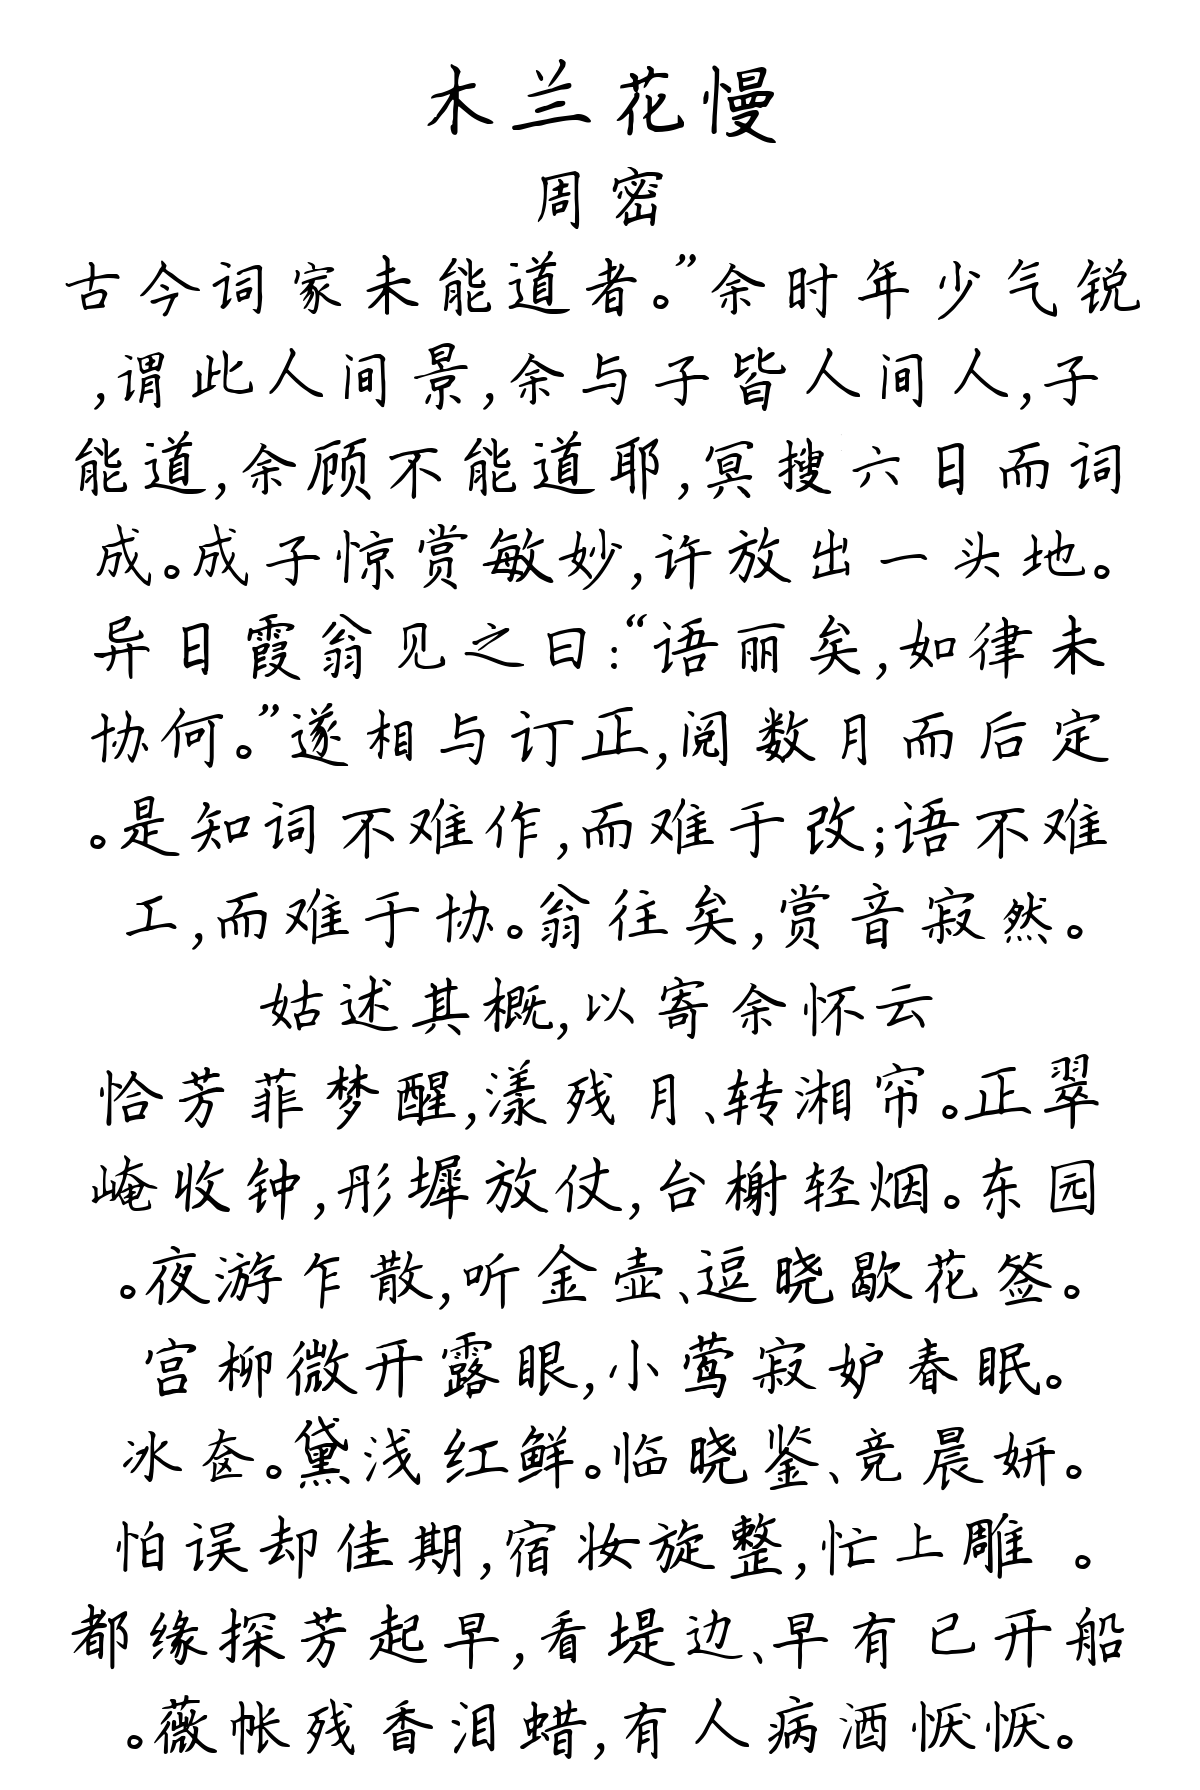 木兰花慢
周密
古今词家未能道者。”余时年少气锐
,谓此人间景,余与子皆人间人,子
能道,余顾不能道耶,冥搜六日而词
成。成子惊赏敏妙,许放出一头地。
异日霞翁见之曰:“语丽矣,如律未
协何。”遂相与订正,阅数月而后定
。是知词不难作,而难于改;语不难
工,而难于协。翁往矣,赏音寂然。
姑述其概,以寄余怀云
恰芳菲梦醒,漾残月、转湘帘。正翠
崦收钟,彤墀放仗,台榭轻烟。东园
。夜游乍散,听金壶、逗晓歇花签。
宫柳微开露眼,小莺寂妒春眠。
冰奁。黛浅红鲜。临晓鉴、竞晨妍。
怕误却佳期,宿妆旋整,忙上雕 。
都缘探芳起早,看堤边、早有已开船
。薇帐残香泪蜡,有人病酒恹恹。